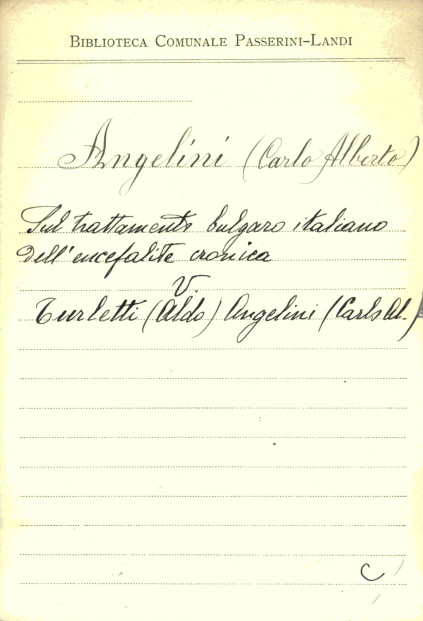 BIBLIOTECA COMUNALE PASSERINI-LANDI
Angelini (Carlo Alberto)
Sul trattamento bulgaro italiano
dell'encefalite cronica
V.
Turletti (Aldo) Angelini (Carlo Al.)
C